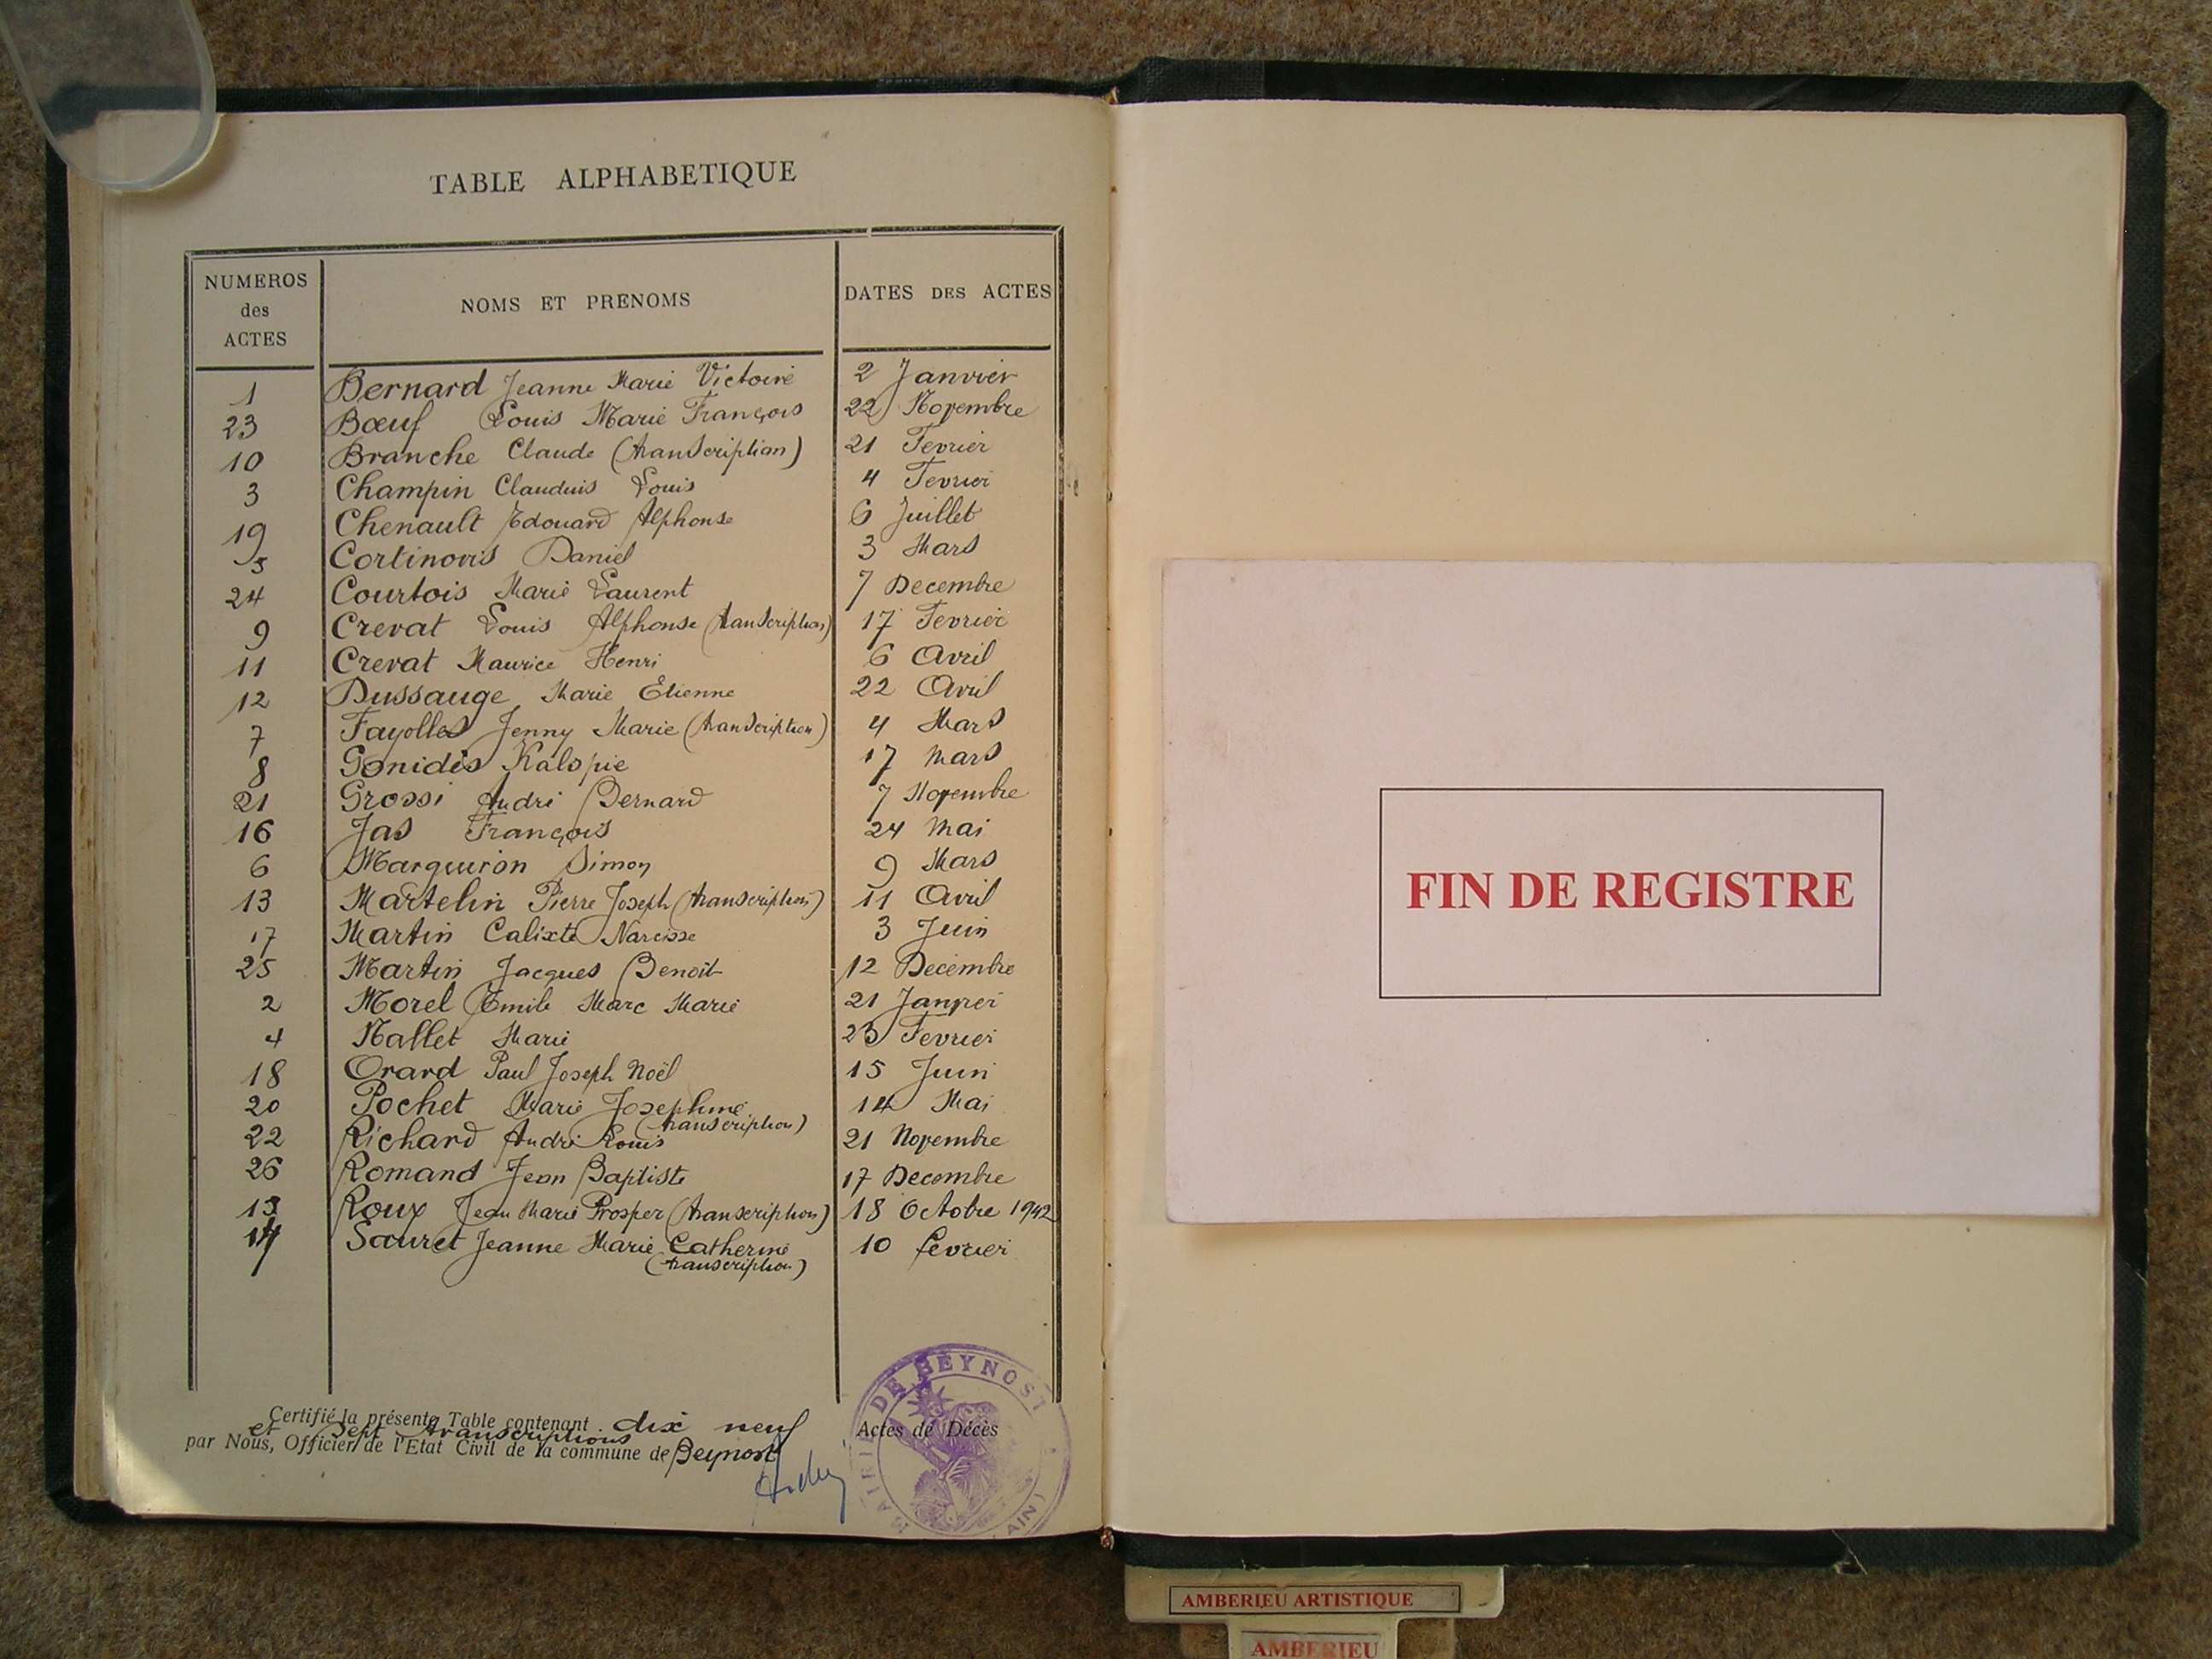 TABLE ALPHABETIQUE
NUMEROS des ACTES NOMS ET PRENOMS DATES DES ACTES
1 Bernard Jeanne Marie Victoire 2 Janvier
23 Bœuf Louis Marie François 22 Novembre
10 Branche Claude (transcription) 21 Fevrier
3 Champin Claudius Louis 4 Fevrier
19 Chenault Edouard Alphonse 6 Juillet
5 Cortinovis Daniel 3 Mars
24 Courtois Marie Laurent 7 Decembre
9 Crevat Louis Alphonse (transcription) 17 Fevrier
11 Crevat Maurice Henri 6 Avril
12 Dussauge Marie Etienne 22 Avril
7 Fayolles Jenny Marie (transcription) 4 Mars
8 Gonidis Kalopie 17 Mars
21 Grossi André Bernard 7 Novembre
16 Jas François 24 Mai
6 Marguiron Simon 9 Mars
13 Martelin Pierre Joseph (transcription) 11 Avril
17 Martin Calixte Narcisse 3 Juin
25 Martin Jacques Benoit 12 Decembre
2 Morel Emile Marc Marie 21 Janvier
4 Nallet Marie 23 Fevrier
18 Orard Paul Joseph Noël 15 Juin
20 Pochet Marie Josephine (transcription) 14 Mai
22 Richard André Louis 21 Novembre
26 Romand Jean Baptiste 17 Decembre
Roux Jean Marie Prosper (transcription) 18 Octobre 1942
14 Sauret Jeanne Marie Catherine (transcription) 10 fevrier
Certifié la présente Table contenant dix neuf Actes de Décès
et Sept transcriptions
par Nous, Officier de l'Etat Civil de la commune de Beynost
MAIRIE DE BEYNOST
(AIN)
FIN DE REGISTRE
AMBERIEU ARTISTIQUE
AMBERIEU